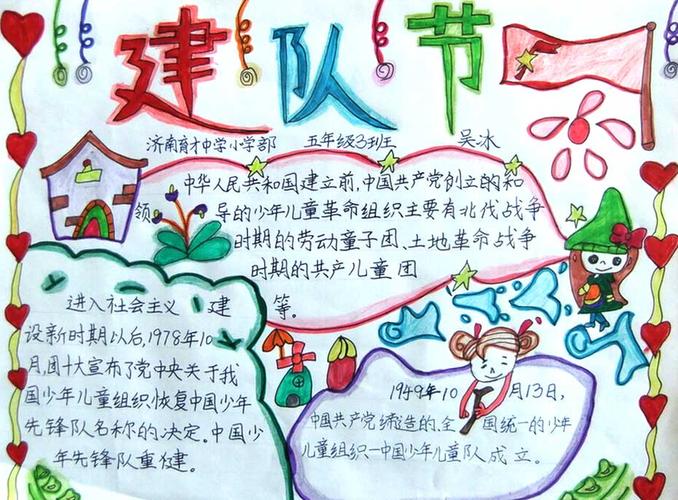 建队节
济南育才中学小学部 五年级3班 吴冰
中华人民共和国建立前,中国共产党创立的和
领导的少年儿童革命组织主要有北伐战争
时期的劳动童子团、土地革命战争
时期的共产儿童团
等。
进入社会主义 建
设新时期以后,1978年10
月,团十大宣布了党中央关于我
国少年儿童组织恢复中国少年
先锋队名称的决定。中国少
年先锋队重健。
1949年10月13日,
中国共产党缔造的,全国统一的少年
儿童组织一中国少年儿童队成立。